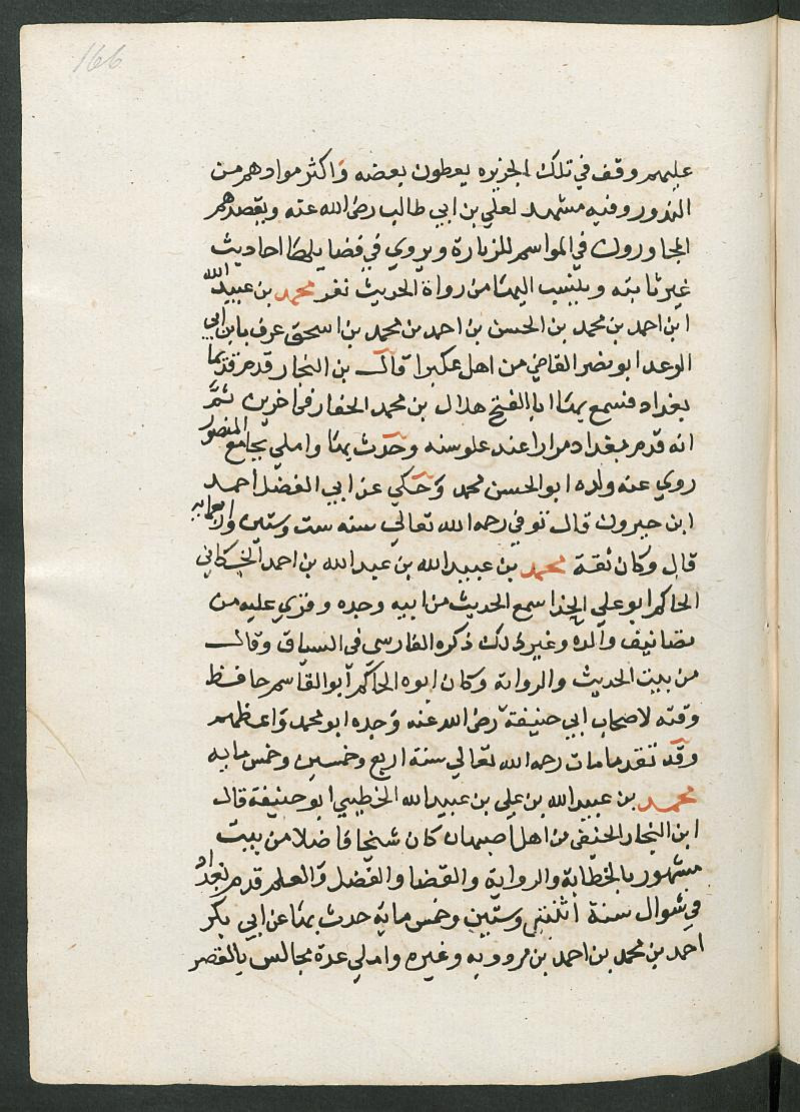 166
عليهم وقف في تلك الجزيره يعطون بعضه واكثر موادهم من
النذور وفيه مشهد لعلي بن ابي طالب رضى الله عنه ويقصدهم
المجاورون في المواسم للزيارة ويروي في فضايلها احاديث
غير ثابته وينسب اليها من رواة الحديث نفر محمد بن عبيد الله
ابن احمد بن محمد بن الحسن بن احمد بن محمد بن اسحق عرف بابن ابي
الوعد ابو نصر القاضي من اهل عكبرا قال بن النجار قدم قديما
بغداد فسمع بها ابا الفتح هلال بن محمد الحفار في اخرين ثم
انه قدم بغداد مرارا عند علو سنه وحدث بها واملي بجامع المنصور
روي عنه ولده ابو الحسن محمد وحكي عن ابي الفضل احمد
ابن خيرون قال توفي رحمه الله تعالي سنه ست وستين واربعمايه
قال وكان ثقة محمد بن عبيد الله بن عبد الله بن احمد الحسكاني
الحاكم ابو علي الحذا سمع الحديث من ابيه وجده وقري عليه من
تصانيف والده وغير ذلك ذكره الفارسي في السياق وقال
من بيت الحديث والرواية وكان ابوه الحاكم ابو القاسم حافظ
وقته لاصحاب ابي حنيفة رضى الله عنه وجده ابو محمد واعظهم
وقد تقدما مات رحمه الله تعالي سنة اربع وخمسين وخمس مايه
محمد بن عبيد الله بن علي بن عبيد الله الخطيبي ابو حنيفة قال
ابن النجار الحنفي من اهل اصبهان كان شيخا فاضلا من بيت
مشهور بالخطابة والرواية والقضا والفضل والعلم قدم بغداد
في شوال سنة اثنتي وستين وخمس ماية حدث بها عن ابي بكر
احمد بن محمد بن احمد بن مردويه وغيره واملي عدة مجالس بالقصر